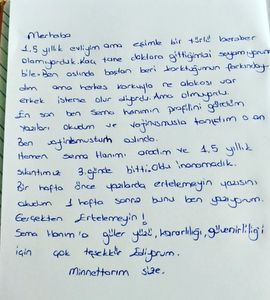 Merhaba
1.5 yıllık evliyim ama eşimle bir türlü beraber
olamıyorduk. Kaç tane doktora gittiğimizi sayamıyorum
bile. Ben aslında baştan beri korktuğumun farkınday-
dım ama herkes korkuyla ne alakası var
erkek isterse olur diyordu. Ama olmuyordu.
En son ben Sema hanımın profilini gördüm
yazıları okudum ve vajinusmusla tanıştım o an
Ben vajinusmustum aslında.
Hemen Sema Hanımı aradım ve 1.5 yıllık
sıkıntımız 3.günde bitti. Oldu inanamadık.
Bir hafta önce yazılarda ertelemeyin yazısını
okudum 1 hafta sonra bunu ben yazıyorum.
Gerçekten Ertelemeyin!
Sema Hanım'a güler yüzü, kararlılığı, güvenirliliği
için çok teşekkür Ediyorum.
Minnettarım size.